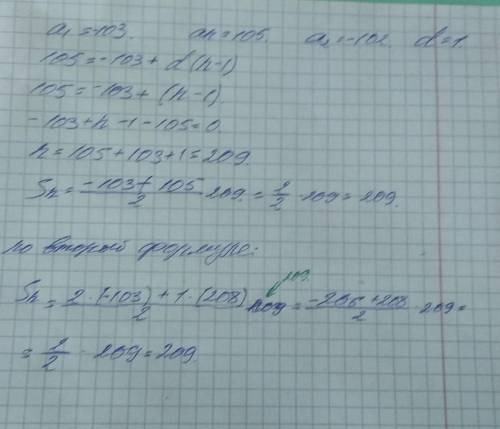 a₁=-103. aₙ=105. a₂=-102. d=1.
105=-103+d(n-1)
105=-103+(n-1)
-103+n-1-105=0.
n=105+103+1=209.
Sₙ=(-103+105)/2·209=2/2·209=209.
по второй формуле:
209.
Sₙ=(2·(-103)+1·(208))/2 =(-206+208)/2·209=
=2/2·209=209